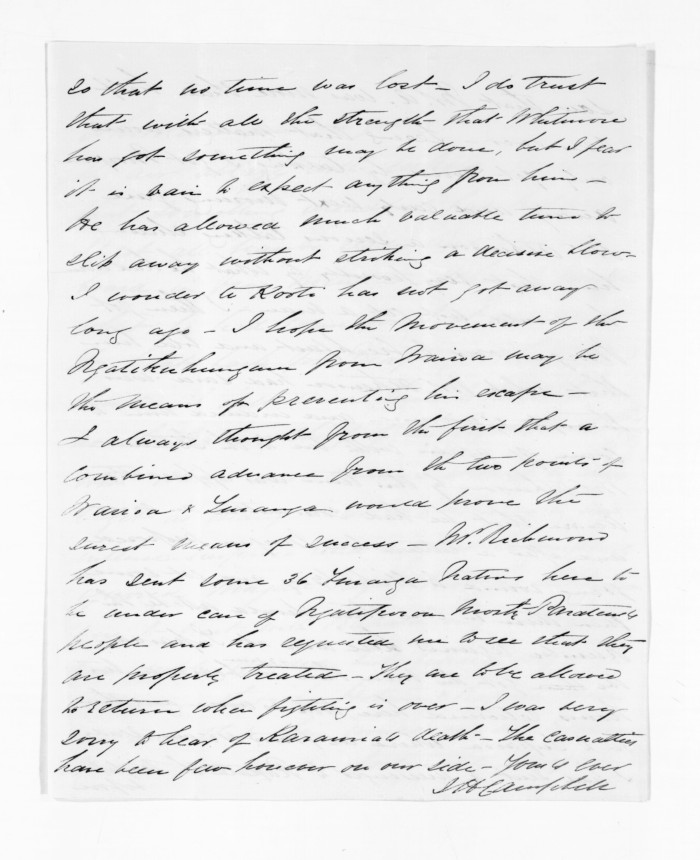 so that no time was lost - I do trust
that with all the strength that Whitmore
has got something may be done, but I fear
it is vain to expect anything from him -
He has allowed much valuable time to
slip away without striking a decisive blow -
I wonder te Kooti has not got away
long ago - I hope the movement of the
Ngatikahungunu from Wairoa may be
the means of preventing his escape -
I always thought from the first that a
combined advance from the two points of
Wairoa & Turanga would prove the
surest means of success - Mr. Richmond
has sent some 36 Turanga Natives here to
be under care of Ngatiporou
people and has requested me to see that they
are properly treated - They are to be allowed
to return when fighting is over - I was very
sorry to hear of Karauria's death - The casualties
have been few however on our side - Yours ever
J H Campbell